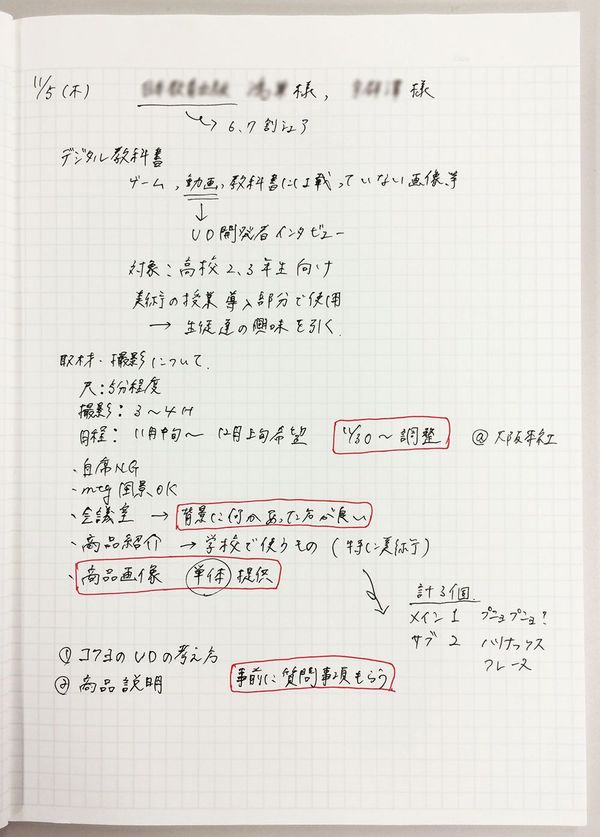 11/5(木) 様, 様
→ 6、7割シェア
デジタル教科書
ゲーム、動画、教科書には載っていない画像、等
↓
UD開発者インタビュー
対象：高校2、3年生向け
美術の授業 導入部分で使用
→ 生徒達の興味を引く
取材・撮影について
尺：5分程度
撮影：3〜4H
日程：11月中旬〜12月上旬希望 11/30〜調整 @大阪本社
・自席NG
・mtg風景、OK
・会議室 → 背景に何かあった方が良い
・商品紹介 → 学校で使うもの(特に美術)
・商品画像 単体 提供
計3個
メイン1 プニョプニョ?
サブ2 ハリナックス
フレーヌ
① コクヨのUDの考え方
② 商品説明 事前に質問事項もらう